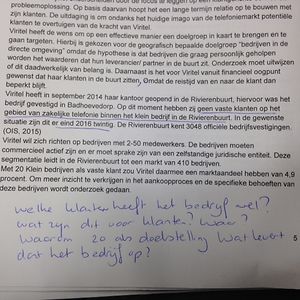 probleemoplossing. Op basis daarvan loopt het een lange termijn relatie op te bouwen met
zijn klanten. De uitdaging is om ondanks het huidige imago van de telefoniemarkt potentiële
klanten te overtuigen van de kracht van Viritel.
Viritel heeft de wens om op een effectieve manier een doelgroep in kaart te brengen en te
gaan targeten. Hierbij is gekozen voor de geografisch bepaalde doelgroep "bedrijven in de
directe omgeving" omdat de hypothese is dat bedrijven die graag persoonlijk geholpen
worden het waarderen dat hun leverancier/ partner in de buurt zit. Onderzoek moet uitwijzen
of dit daadwerkelijk van belang is. Daarnaast is het voor Viritel vanuit financieel oogpunt
gewenst dat haar klanten in de buurt zitten, omdat de reistijd van en naar de klant dan
beperkt blijft.
Viritel heeft in september 2014 haar kantoor geopend in de Rivierenbuurt, hiervoor was het
bedrijf gevestigd in Badhoevedorp. Op dit moment hebben zij geen vaste klanten op het
gebied van zakelijke telefonie binnen het klein bedrijf in de Rivierenbuurt. In de gewenste
situatie zijn dit er eind 2016 twintig. De Rivierenbuurt kent 3048 officiële bedrijfsvestigingen.
(OIS, 2015)
Viritel wil zich richten op bedrijven met 2-50 medewerkers. De bedrijven moeten
commercieel actief zijn en er moet sprake zijn van een zelfstandige juridische entiteit. Deze
segmentatie leidt in de Rivierenbuurt tot een markt van 410 bedrijven.
Met 20 Klein bedrijven als vaste klant zou Viritel daarmee een marktaandeel hebben van 4,9
procent. Om meer inzicht te verkrijgen in het aankoopproces en de specifieke behoeften van
deze bedrijven wordt onderzoek gedaan.
welke klanten heeft het bedrijf wel?
wat zijn dit voor klanten? Waar?
Waarom 20 als doelstelling wat levert
dat het bedrijf op?
5